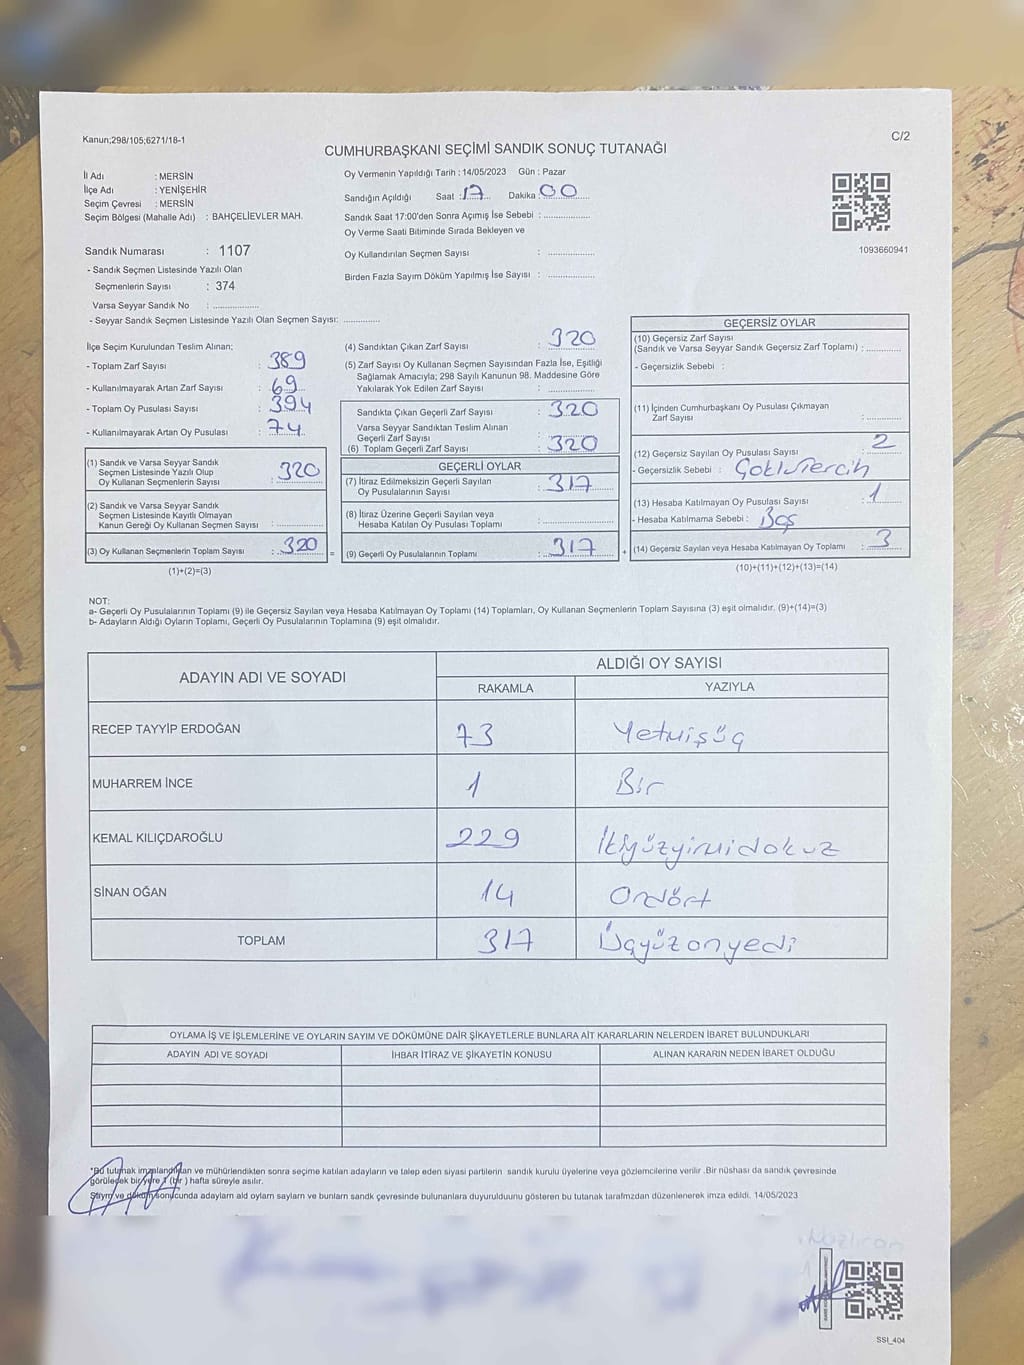 Kanun;298/105;6271/18-1
C/2
CUMHURBAŞKANI SEÇİMİ SANDIK SONUÇ TUTANAĞI
İl Adı : MERSİN
İlçe Adı : YENİŞEHİR
Seçim Çevresi : MERSİN
Seçim Bölgesi (Mahalle Adı) : BAHÇELİEVLER MAH.
Oy Vermenin Yapıldığı Tarih : 14/05/2023 Gün : Pazar
Sandığın Açıldığı Saat : 17 Dakika : 00
Sandık Saat 17:00'den Sonra Açımış İse Sebebi :
Oy Verme Saati Bitiminde Sırada Bekleyen ve
Oy Kullandırılan Seçmen Sayısı :
Birden Fazla Sayım Döküm Yapılmış İse Sayısı :
1093660941
Sandık Numarası : 1107
- Sandık Seçmen Listesinde Yazılı Olan
Seçmenlerin Sayısı : 374
Varsa Seyyar Sandık No :
- Seyyar Sandık Seçmen Listesinde Yazılı Olan Seçmen Sayısı:
İlçe Seçim Kurulundan Teslim Alınan;
- Toplam Zarf Sayısı : 389
- Kullanılmayarak Artan Zarf Sayısı : 69
- Toplam Oy Pusulası Sayısı : 394
- Kullanılmayarak Artan Oy Pusulası : 74
(1) Sandık ve Varsa Seyyar Sandık
Seçmen Listesinde Yazılı Olup
Oy Kullanan Seçmenlerin Sayısı : 320
(2) Sandık ve Varsa Seyyar Sandık
Seçmen Listesinde Kayıtlı Olmayan
Kanun Gereği Oy Kullanan Seçmen Sayısı :
(3) Oy Kullanan Seçmenlerin Toplam Sayısı : 320
(1)+(2)=(3)
=
(4) Sandıktan Çıkan Zarf Sayısı : 320
(5) Zarf Sayısı Oy Kullanan Seçmen Sayısından Fazla İse, Eşitliği
Sağlamak Amacıyla; 298 Sayılı Kanunun 98. Maddesine Göre
Yakılarak Yok Edilen Zarf Sayısı :
Sandıkta Çıkan Geçerli Zarf Sayısı : 320
Varsa Seyyar Sandıktan Teslim Alınan
Geçerli Zarf Sayısı :
(6) Toplam Geçerli Zarf Sayısı : 320
GEÇERLİ OYLAR
(7) İtiraz Edilmeksizin Geçerli Sayılan
Oy Pusulalarının Sayısı : 317
(8) İtiraz Üzerine Geçerli Sayılan veya
Hesaba Katılan Oy Pusulası Toplamı :
(9) Geçerli Oy Pusulalarının Toplamı : 317
+
GEÇERSİZ OYLAR
(10) Geçersiz Zarf Sayısı
(Sandık ve Varsa Seyyar Sandık Geçersiz Zarf Toplamı) :
- Geçersizlik Sebebi :
(11) İçinden Cumhurbaşkanı Oy Pusulası Çıkmayan
Zarf Sayısı :
(12) Geçersiz Sayılan Oy Pusulası Sayısı : 2
- Geçersizlik Sebebi : Çoklu tercih
(13) Hesaba Katılmayan Oy Pusulası Sayısı : 1
- Hesaba Katılmama Sebebi : Boş
(14) Geçersiz Sayılan veya Hesaba Katılmayan Oy Toplamı : 3
(10)+(11)+(12)+(13)=(14)
NOT:
a- Geçerli Oy Pusulalarının Toplamı (9) ile Geçersiz Sayılan veya Hesaba Katılmayan Oy Toplamı (14) Toplamları, Oy Kullanan Seçmenlerin Toplam Sayısına (3) eşit olmalıdır. (9)+(14)=(3)
b- Adayların Aldığı Oyların Toplamı, Geçerli Oy Pusulalarının Toplamına (9) eşit olmalıdır.
ADAYIN ADI VE SOYADI
ALDIĞI OY SAYISI
RAKAMLA YAZIYLA
RECEP TAYYİP ERDOĞAN 73 Yetmişüç
MUHARREM İNCE 1 Bir
KEMAL KILIÇDAROĞLU 229 İkiyüzyirmidokuz
SİNAN OĞAN 14 Ondört
TOPLAM 317 Üçyüzonyedi
OYLAMA İŞ VE İŞLEMLERİNE VE OYLARIN SAYIM VE DÖKÜMÜNE DAİR ŞİKAYETLERLE BUNLARA AİT KARARLARIN NELERDEN İBARET BULUNDUKLARI
ADAYIN ADI VE SOYADI İHBAR İTİRAZ VE ŞİKAYETİN KONUSU ALINAN KARARIN NEDEN İBARET OLDUĞU
*Bu tutanak imzalandıktan ve mühürlendikten sonra seçime katılan adayların ve talep eden siyasi partilerin sandık kurulu üyelerine veya gözlemcilerine verilir .Bir nüshası da sandık çevresinde
görülecek bir yere 1 (bir ) hafta süreyle asılır.
Sayım ve döküm sonucunda adayların ald oyların sayların ve bunların sandk çevresinde bulunanlara duyurulduunu gösteren bu tutanak tarafmzdan düzenlenerek imza edildi. 14/05/2023
SSI_404